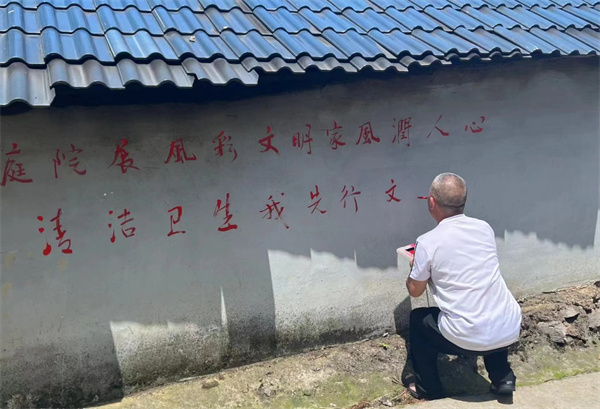 庭院展风彩文明家风润人心
清洁卫生我先行文